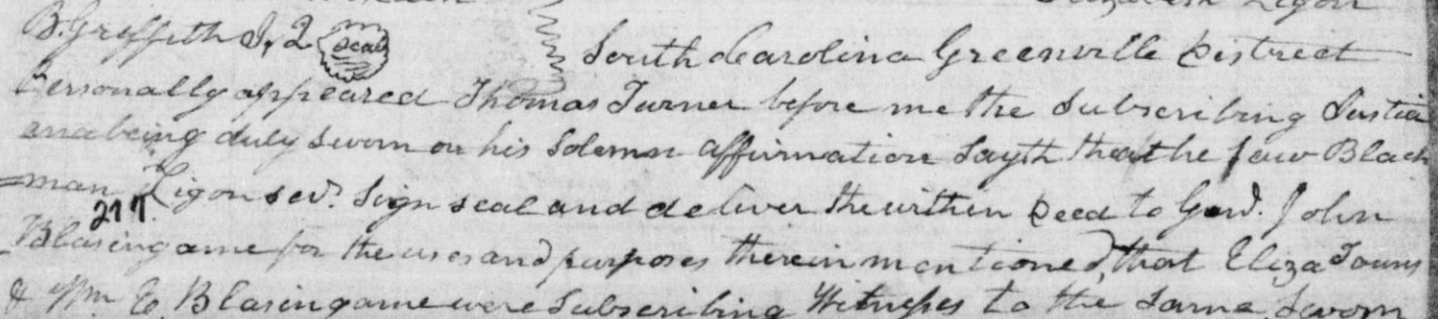 Elizabeth Ligon
B. Griffith J, 2 seal South Carolina Greenville District
Personally appeared Thomas Turner before me the Subscribing Justice
and being duly sworn on his Solemn affirmation Sayth that he saw Black
=man Ligon sed. Sign seal and deliver the within Deed to Genl. John
217.
Blasingame for the uses and purposes therein mentioned, that Eliza Towns
& Wm. E. Blasingame were Subscribing Witnesses to the same, Sworn